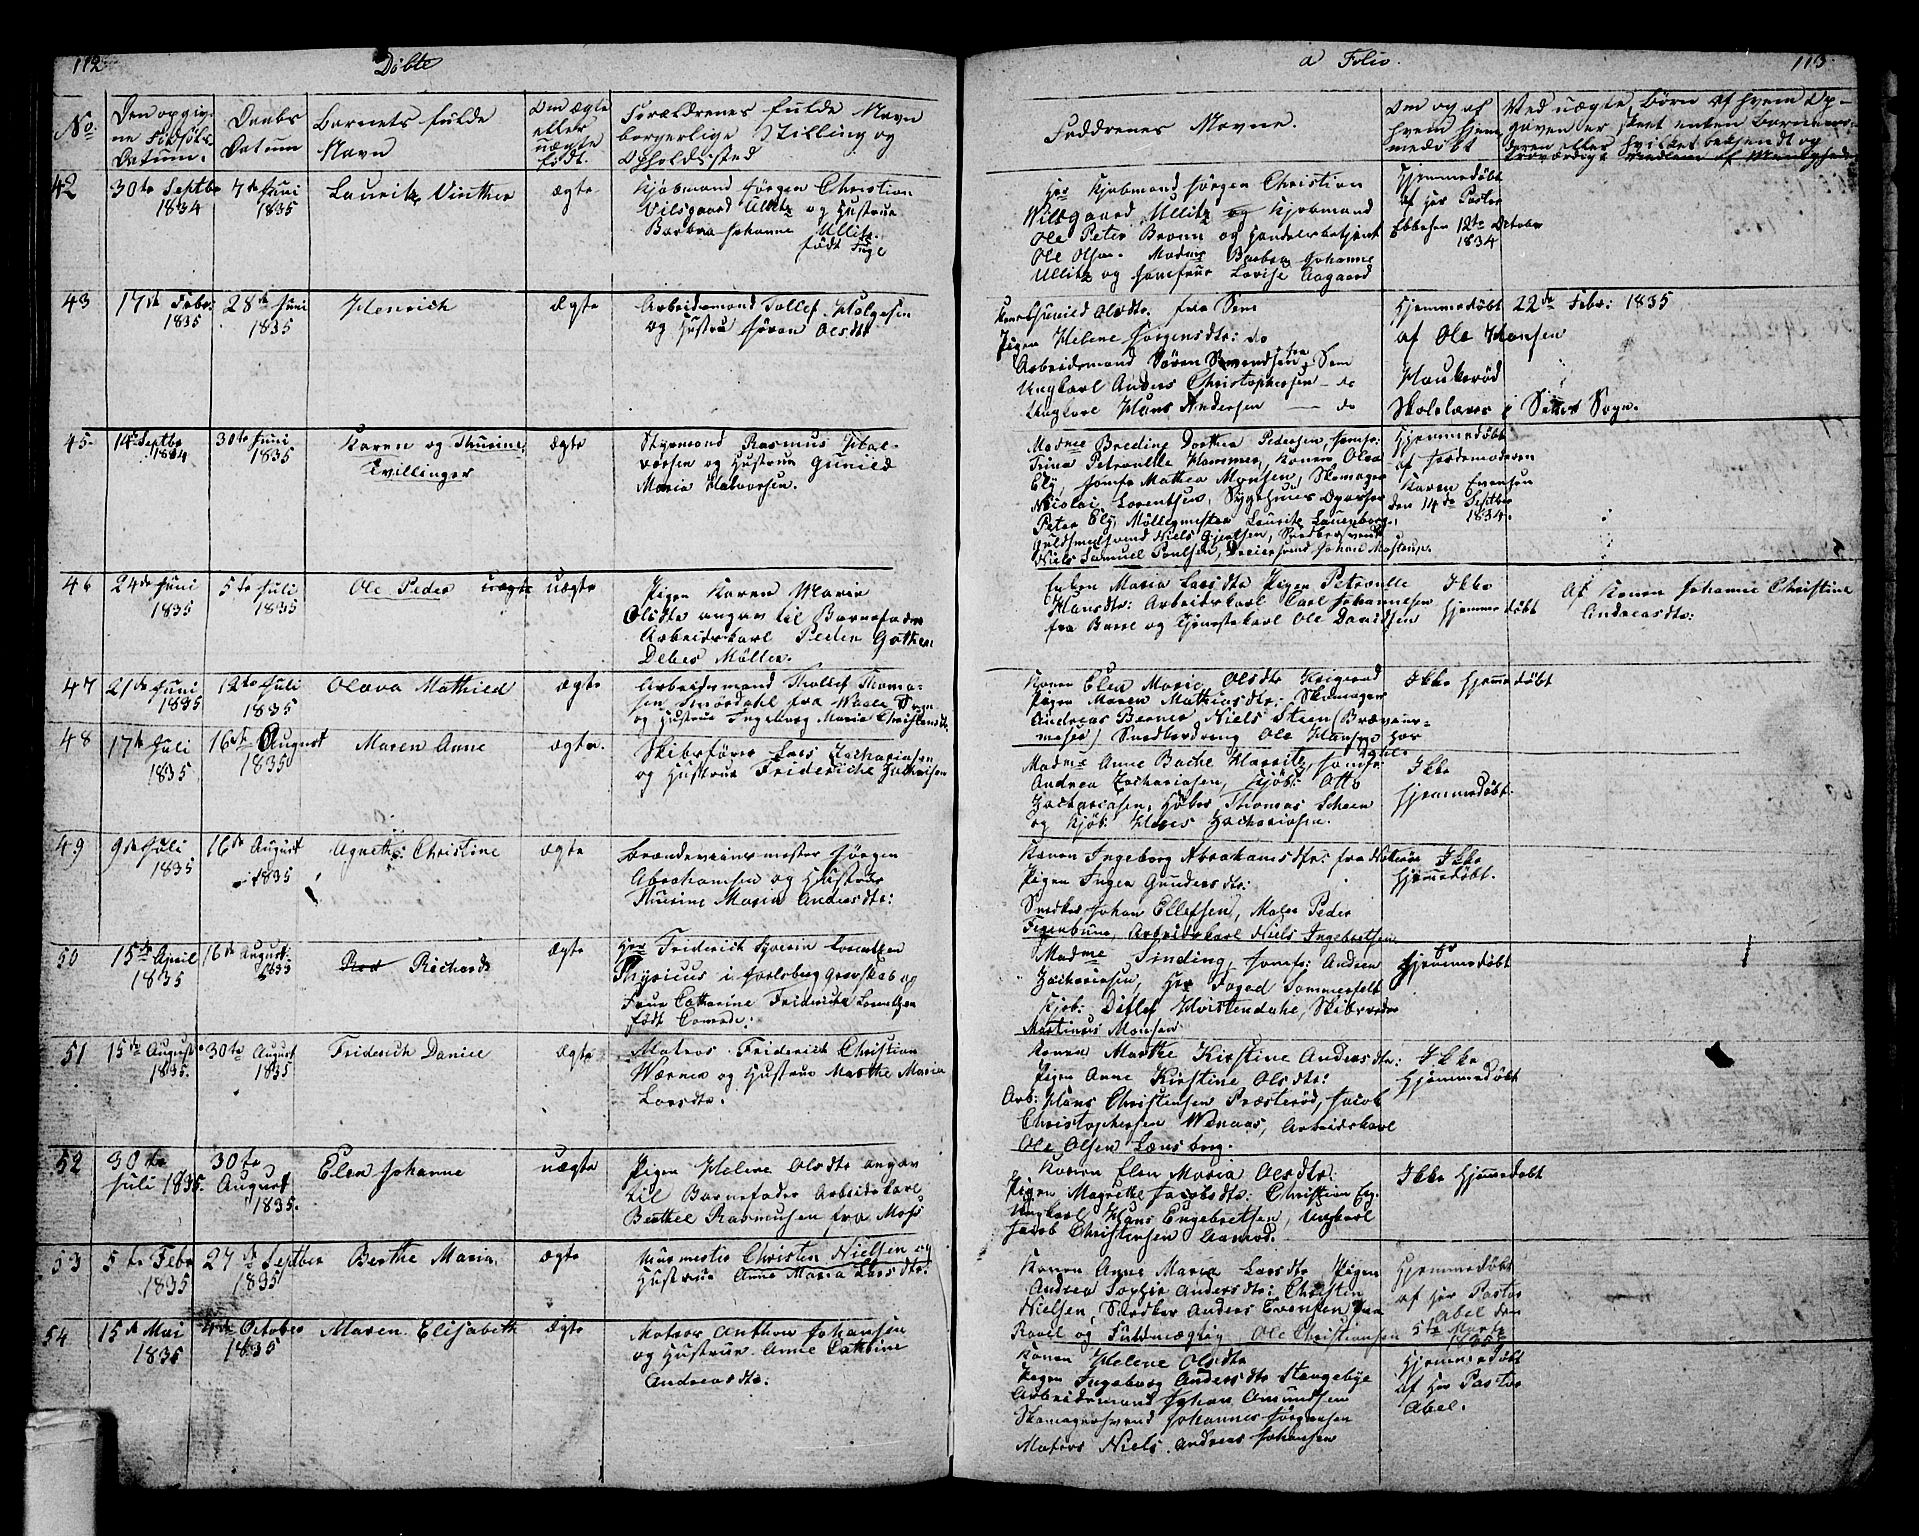 112 Døbte
No.
Den opgiv-
ne Fødsels
Datum.
Daabs
Datum
Barnets fulde
Navn
Om ægte
eller
uægte
født.
Forældrenes fulde Navn
borgerlige Stilling og
Opholdssted
42
30te Septbr
1834
7de Juni
1835
Lauritz Vinther
ægte
Kjøbmand Jørgen Christian
Vilsgaard Ullitz og Hustrue
Barbra Johanne Ullitz
født Fugl
43
17de Febr:
1835
28de Juni
1835
Henrich
ægte
Arbeidsmand Tollef Holgesen
og Hustrue Søran Olsdtr
45
14de Septbr
1834
30te Juni
1835
Karen og Thurine
Tvillinger
ægte
Styrmand Rasmus Hal-
vorsen og Hustrue Gunild
Maria Halvorsen.
46
24de Juni
1835
5te Juli
1835
Ole Peder
uægte
uægte
Pigen Karen Marie
Olsdtr angav til Barnefader
Arbeidskarl Peder Gothen
Debes Møller.
47
21de Juni
1835
12te Juli
1835
Olava Mathild
ægte
Arbeidsmand Thollef Thoma-
sen Smørdahl fra Vaale Sogn
og Hustrue Ingeborg Maria Christensdtr
48
17de Juli
1835
16de August
1835
Maren Anne
ægte.
Skibsfører Lars Zachariasen
og Hustrue Frideriche Zachrisen
49
9de Juli
1835
16de August
1835
Agnethe Christine
ægte
Brændeviinsmester Jørgen
Abrahamsen og Hustrue
Thurine Maria Andersdtr:
50
15de April
1835
16de August:
1835
Richard
ægte
Herr Friderich Severin Lorentzen
Physicus i Jarlsberg Grevskab og
Frue Catharine Fridericke Lorentzen
født Conrade.
51
15de August
1835.
30te August
1835
Friderich Daniel
ægte
Matros Friderich Christian
Werner og Hustrue Marthe Maria
Larsdtr.
52
30te
Juli 1835.
30te
August
1835.
Elen Johanne
uægte
Pigen Helene Olsdtr angav
til Barnefader Arbeidskarl
Berthel Rasmusen fra Moss
53
5te Febr
1835
27de Septbr
1835
Berthe Maria
ægte
Murmester Christen Nielsen og
Hustrue Anne Maria Larsdtr:
54
15de Mai
1835
4de October
1835
Maren Elisabeth
ægte
Matros Anthon Johansen
og Hustrue Anne Cathrine
Andreasdtr.
a Folio. 113
Faddrenes Navne.
Om og af
hvem hjem-
medøbt
Ved uægte Børn af hvem Op-
gaven er skeet enten Barnemo-
deren eller hvilket bekjendt og
troværdigt
Herr Kjøbmand Jørgen Christian
Wilsgaard Ullitz og Kjøbmand
Ole Peter Bruun og Handelsbetjent
Ole Olsen. Madme Barbra Johanne
Ullitz og Jomfrue Lovise Aagaard
Hjemmedøbt
af Her Pastor
Ebbesen 12te October
1834
Kone Gunild Olsdtr. fra Sem
Pigen Helene Jørgensdtr: do
Arbeidsmand Søren Svendsen fra Sem
Ungkarl Anders Christophersen — do
Ungkarl Hans Andersen — do
Hjemmedøbt 22de Febr: 1835
af Ole Hansen
Haukerød
Skolelærer i Sem Sogn.
Madme Bredine Dorthea Pedersen, Jomfr:
Trina Petronille Hammer, Konen Olea
Ely, Jomfr Mathea Monsen, Skomager
Nicolai Lorentsen,
Peter Ely, Møllemester Lauritz Lauenborg,
Guldsmedsvend Niels Gjertsen, Snedkersvend
Niels Samuel Poulsen, Dreiersvend Johan Mostrup.
Hjemmedøbt
af Jordemoderen
Karen Evensen
den 14de Septbr
1834.
Enken Maria Larsdtr Pigen Petronille
Hansdtr: Arbeidskarl Carl Johannesen
fra Barre og Tjenestekarl Ole Davidsen
Ikke
Hjemmedøbt
Af Konen Johanne Christine
Andreasdtr:
Konen Elen Marie Olsdtr
Pigen Maren Mathiasdtr: Skomager
Andreas Berner, Niels Steen (Brævins-
mester) Snedkerdreng Ole Hansen
Ikke Hjemmedøbt
Madme Anne Bache Hassitz, Jomfr
Andrea Zachariasen, Kjøb: Otto
Zachariasen, Thomas Scheen
og Kjøb. Hans Zachariasen.
Ikke
Hjemmedøbt.
Konen Ingeborg Abrahamsdtr: fra
Pigen Inger Gundersdtr:
Snedker Johan Ellefsen, Maler Peder
Tegenbune, Arbeidskarl Niels Ingebretsen
Ikke
Hjemmedøbt.
Madme Sinding, Jomfr: Andrea
Zachariasen, Her Foged Sommerfelt
Kjøb: Ditlef Hvistendahl, Skibsreder
Martinus Monsen
Hjemmedøbt
Konen Marthe Kirstine Andersdtr:
Pigen Anne Kirstine Olsdtr:
Arb: Hans Christensen Præsterød, Jacob
Christophersen Wenaas, Arbeidskarl
Ole Olsen Lænsberg.
Ikke
Hjemmedøbt
Konen Elen Maria Olsdtr:
Pigen Magrethe Jacobsdtr: Christian Eg.
Ungkarl Hans Engebretsen, Ungkarl
Jacob Christensen Aamod.
Ikke Hjemmedøbt
Konen Anne Maria Larsdtr Pigen
Andrea Sophie Andersdtr: Christen
Nielsen, Snedker Anders Evensen paa
Ravel og Fuldmægtig Ole Christiansen
Hjemmedøbt
af Her Pastor
Abel den
5te Marts
1835
Konen Helene Olsdtr
Pigen Ingeborg Andersdtr Stangebye
Arbeidsmand Johan Amundsen
Skomagersvend Johannes Jørgensen
Matros Niels Andreas Johansen
Hjemmedøbt
af Her Pastor
Abel.